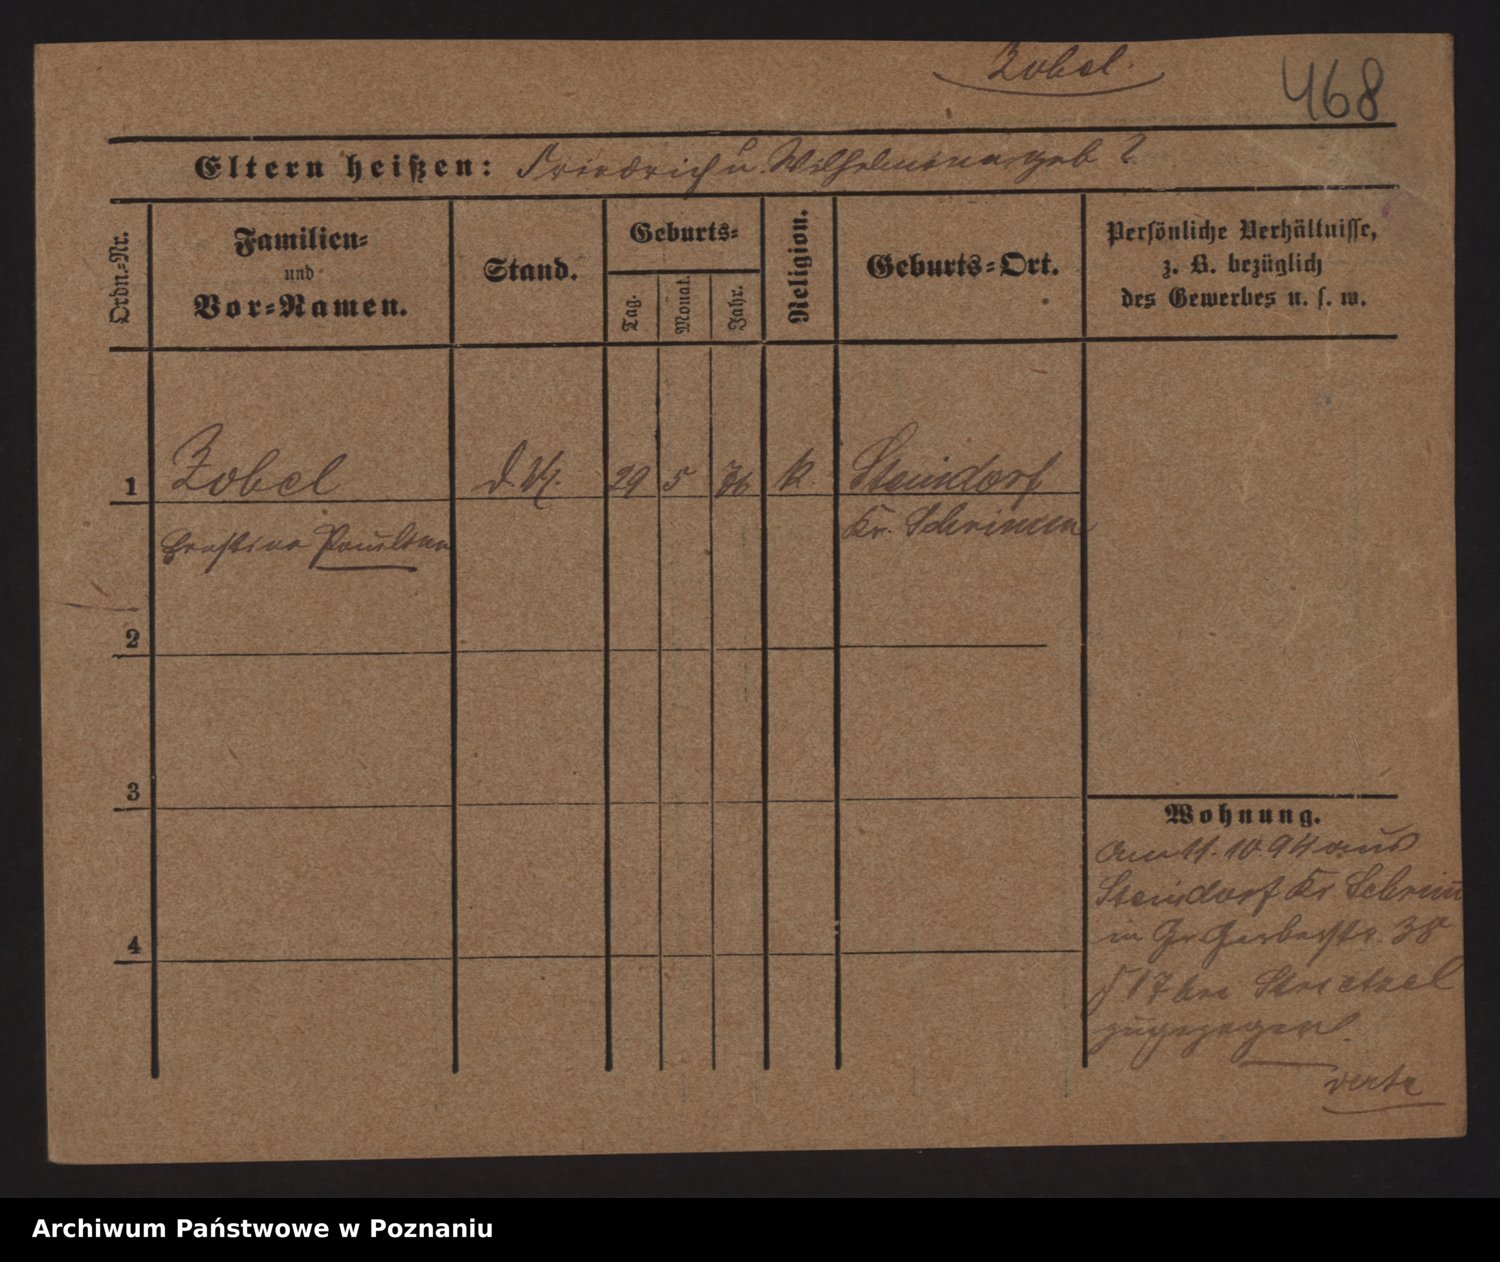 Zobel.
468
Eltern heißen: Friedrich u. Wilhelmina geb ?
Ordn.-Nr.
Familien-
und
Vor-Namen.
Stand.
Geburts-
Tag.
Monat.
Jahr.
Religion.
Geburts-Ort.
Persönliche Verhältnisse,
z. B. bezüglich
des Gewerbes u. s. w.
1 Zobel 29 5 76 k. Steindorf
Ernstine Pauline Kr. Schrimm
2
3
4
Wohnung.
Am 11.10.94 aus
Steindorf Kr. Schrim̅
in Gr. Gerberstr. 38
bei Strietzel
zugezogen.
verte
Archiwum Państwowe w Poznaniu